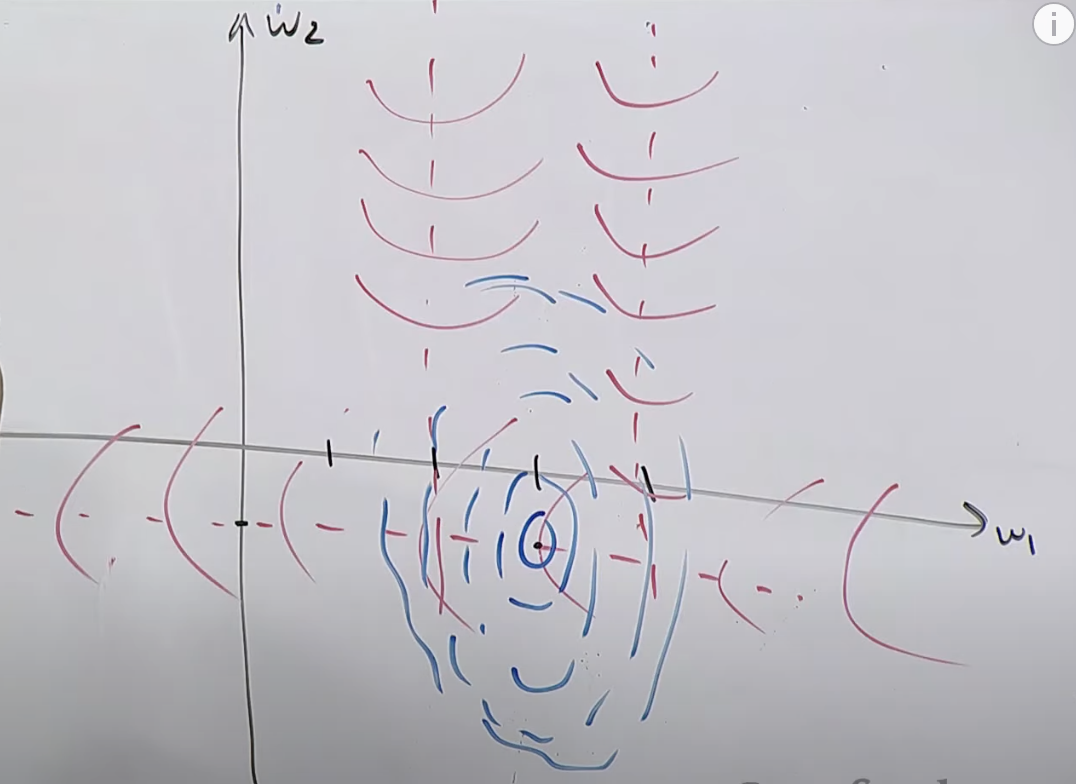 w₂
w₁